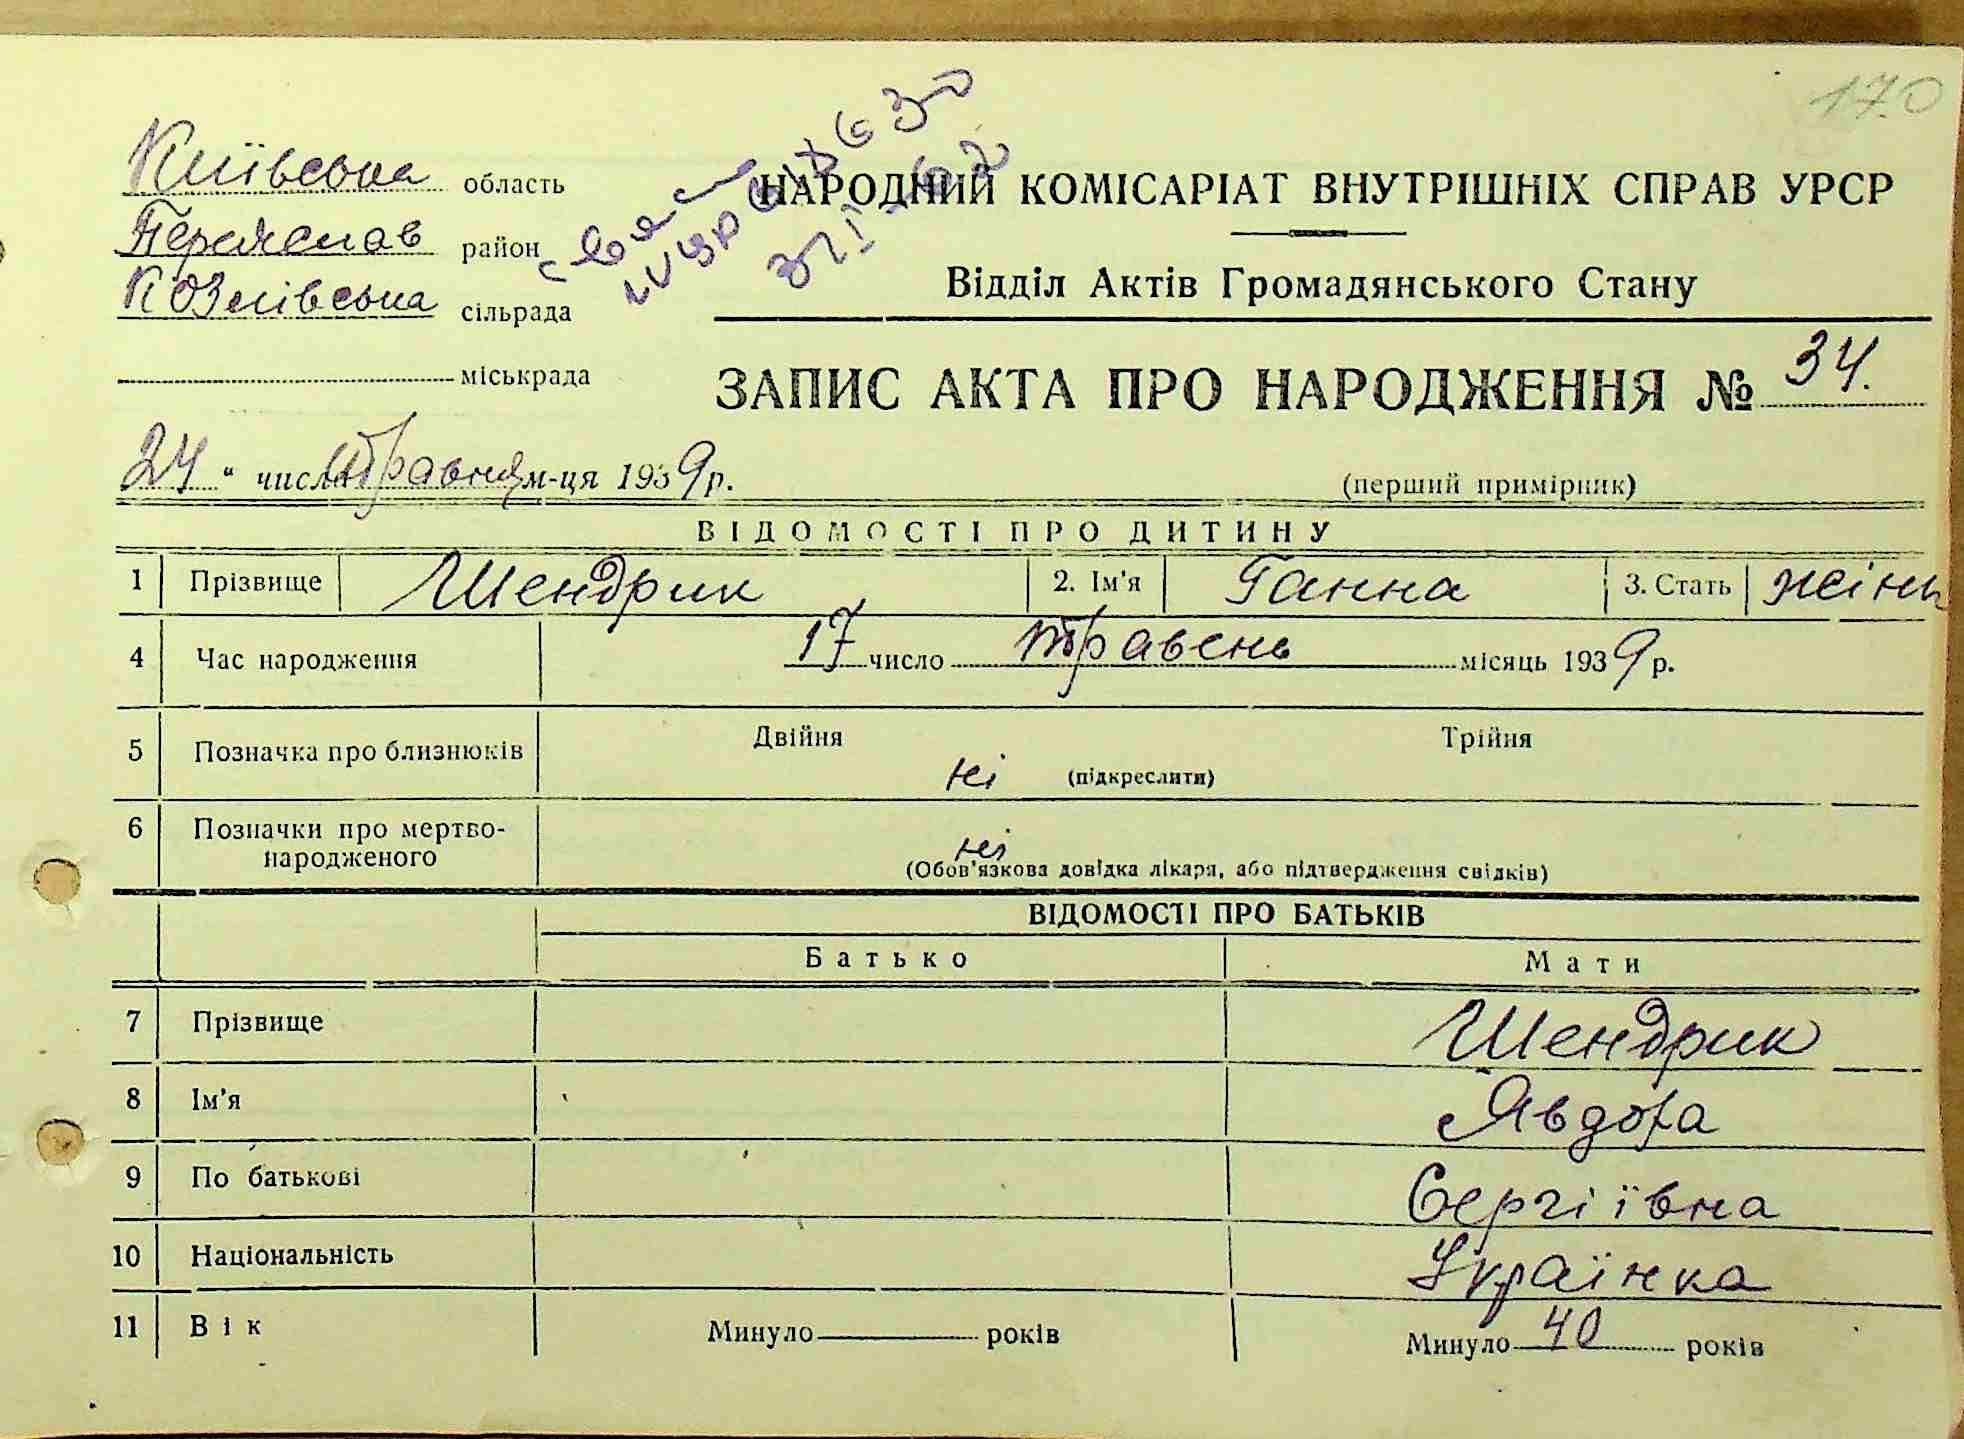 170
Київська область
Переяслав район
Козлівська сільрада
міськрада
НАРОДНИЙ КОМІСАРІАТ ВНУТРІШНІХ СПРАВ УРСР
Відділ Актів Громадянського Стану
ЗАПИС АКТА ПРО НАРОДЖЕННЯ № 34.
24 " числа травня м-ця 1939 р.
(перший примірник)
ВІДОМОСТІ ПРО ДИТИНУ
1 Прізвище Шендрик 2. Ім'я Ганна 3. Стать жіноч
4 Час народження 17 число травень місяць 1939 р.
5 Позначка про близнюків Двійня Трійня
ні (підкреслити)
6 Позначки про мертво-
народженого ні
(Обов'язкова довідка лікаря, або підтвердження свідків)
ВІДОМОСТІ ПРО БАТЬКІВ
Батько Мати
7 Прізвище Шендрик
8 Ім'я Явдоха
9 По батькові Сергіївна
10 Національність Українка
11 Вік Минуло років Минуло 40 років